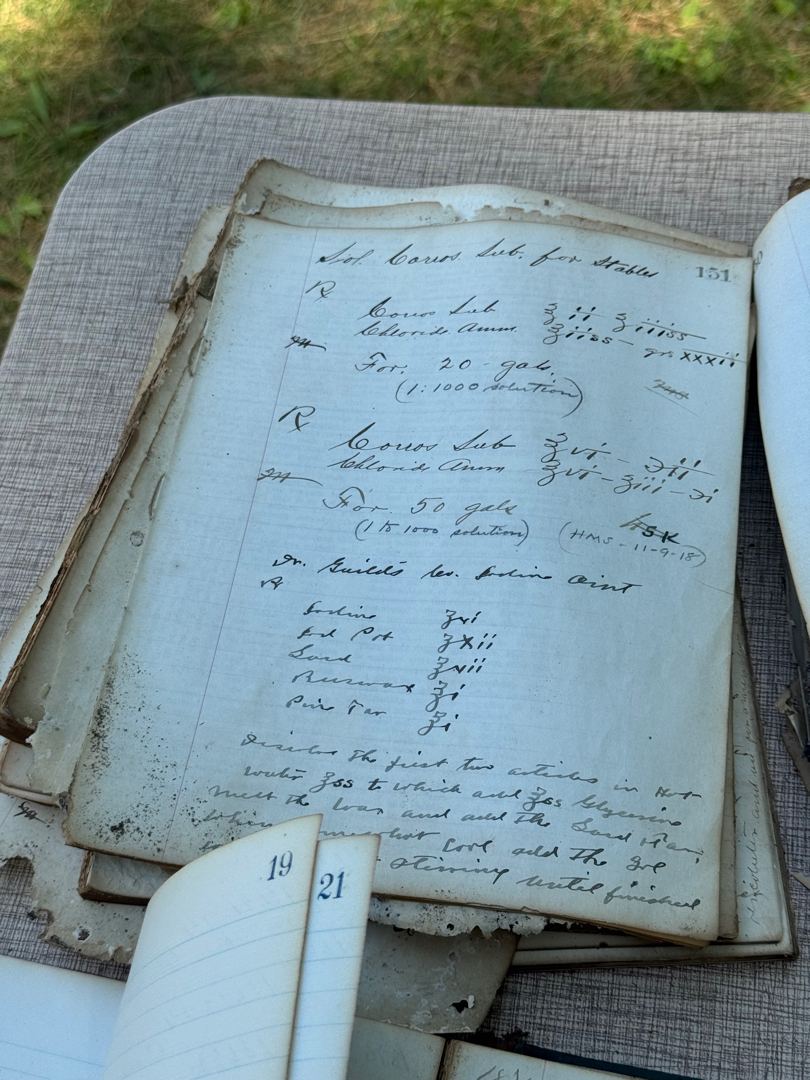 Sol. Corros Sub. for Stables
151
℞
Corros Sub ℥ii ʒiiiss
Chloride Amm. ℥iiss - grs xxxii
M
For. 20 gals.
(1:1000 solution)
℞
Corros Sub ℥vi - ℈ii
Chloride Amm ℥vi - ʒiii - ℈i
M
For. 50 gals
(1 to 1000 solution) (HMS - 11-9-18)
SK
Dr. Guild's Co. Iodine Oint
℞
Iodine ʒvi
Iod Pot ʒxii
Lard ℥xii
Beeswax ℥i
Pine Tar ℥i
Dissolve the first two articles in Hot
water ℥ss to which add ℥ss Glycerine
melt the wax and add the Lard & Tar,
When somewhat cool add the Sol
stirring until finished
19
21